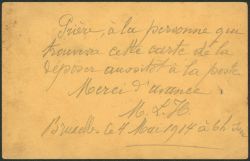 Prière, à la personne qui
trouvera cette carte de la
déposer aussitot à la poste
Merci d'avance
M. L. H.
Bruxelles ce 4 Mai 1914 à 6h